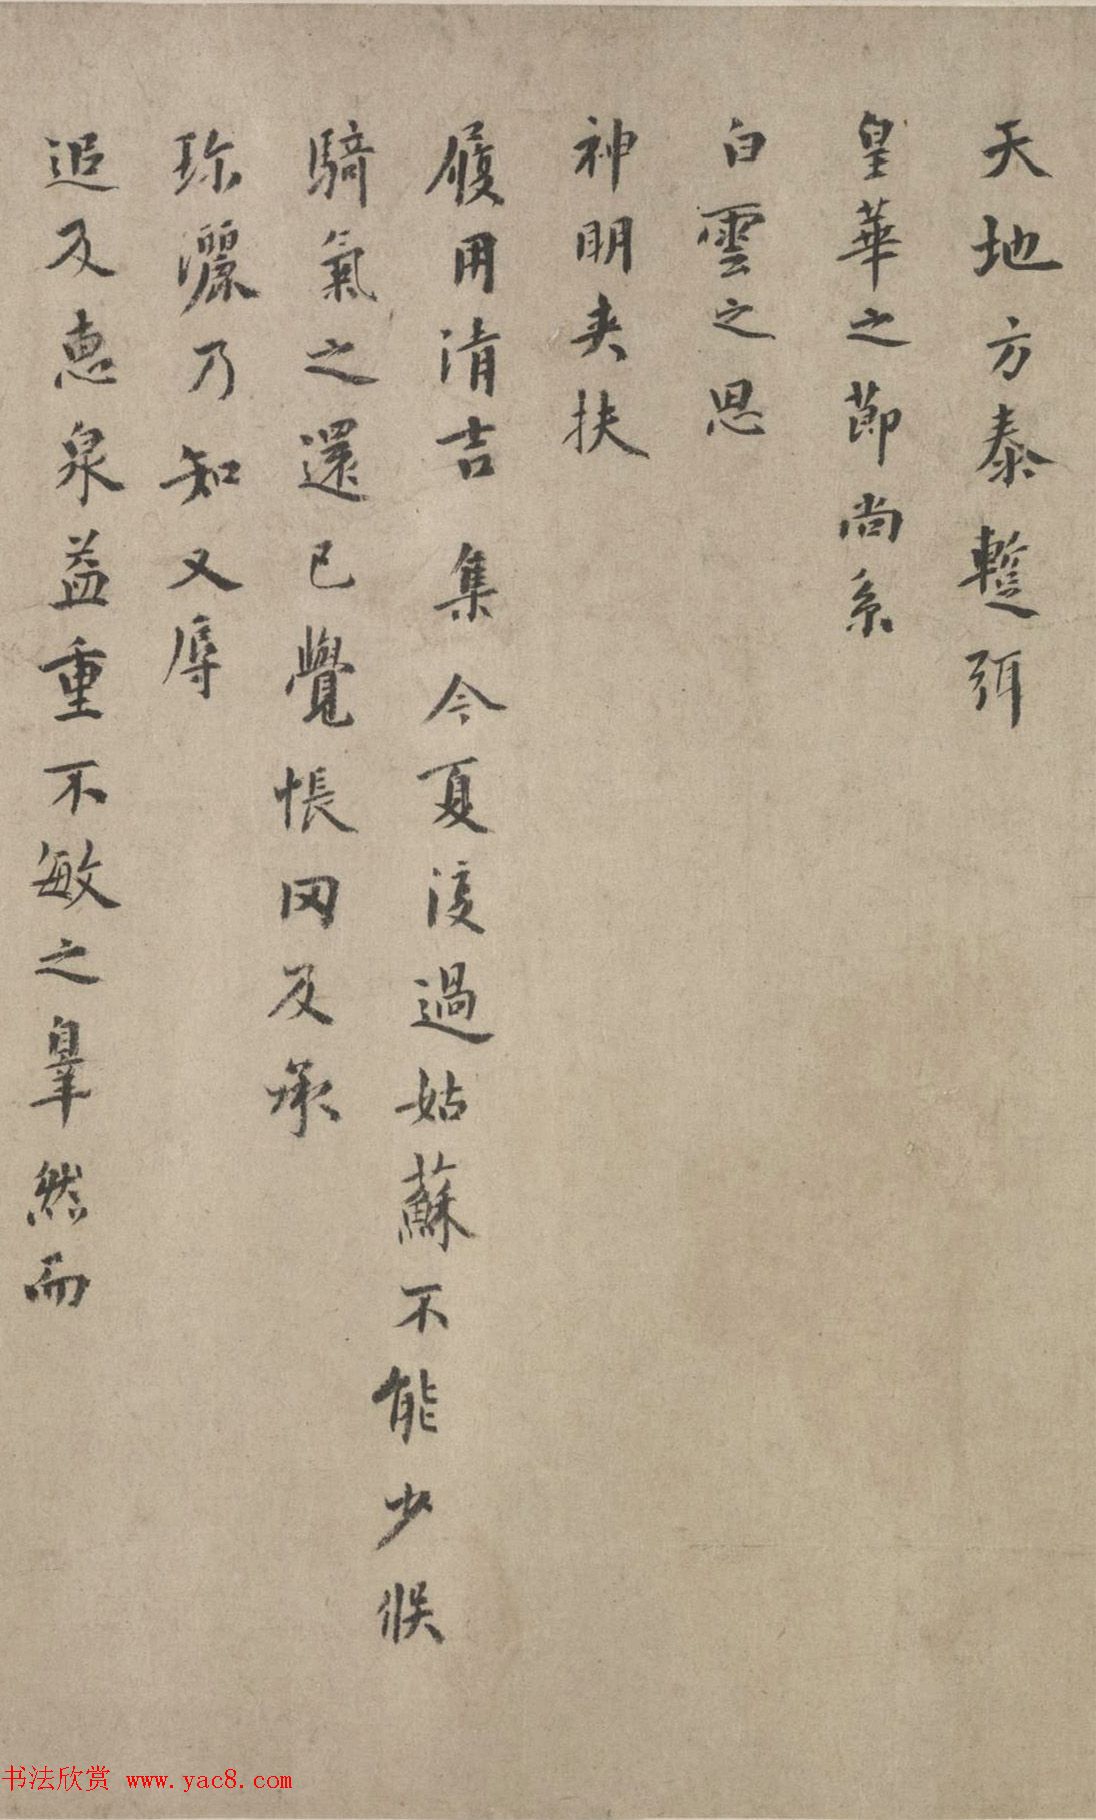 天地方泰蹔弭
皇華之節尚系
白雲之思
神明夾扶
履用清吉集今夏渡過姑蘇不能少候
騎氣之還已覺悵罔及承
珎灑乃知又辱
追及惠泉益重不敏之辠然而
书法欣赏 www.yac8.com